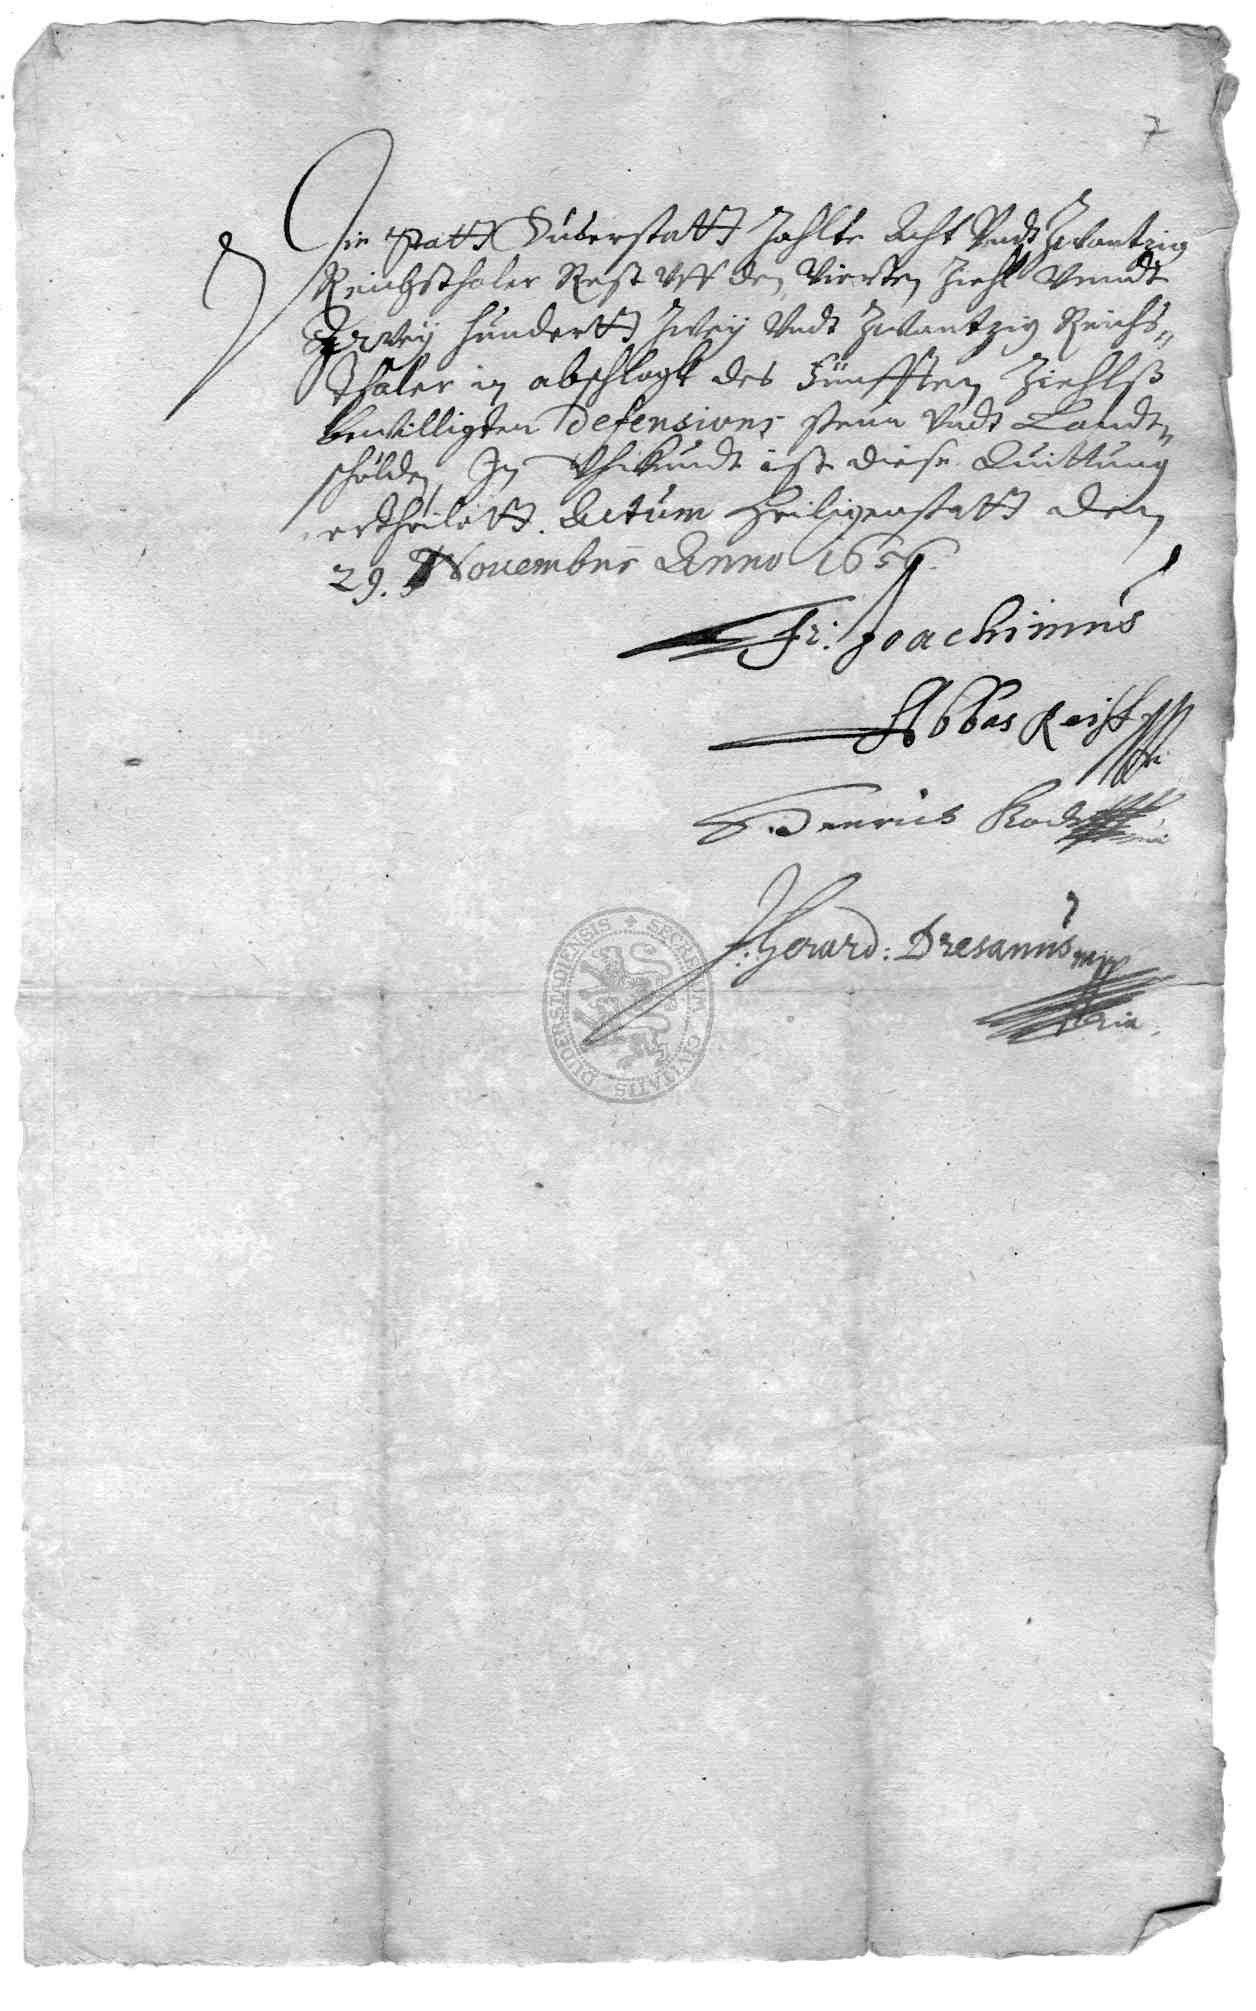 7
Die Statt Duderstatt zahlte Acht Vndt Zwantzig
Reichsthaler Rest Vff den Vierten Ziehl Vnndt
Zwey hundertt Zwey Vndt Zwantzig Reichs„
Thaler in abschlagk des Fünfften Ziehlß
bewilligten Defensions steur Vndt Landt„
schulden, In Vhrkundt ist diese Quittung
ertheilett. Actum Heiligenstatt den
29. Novembris Anno 1656.
Fr: Joachimus
Abbas Reiff
Henrich
Gerard: Dresanus mpp
SECRETUM CIVITATIS DUDERSTADIENSIS